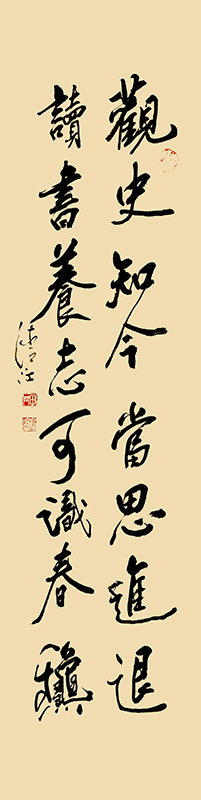 觀史知今當思進退
讀書養志可識春龝